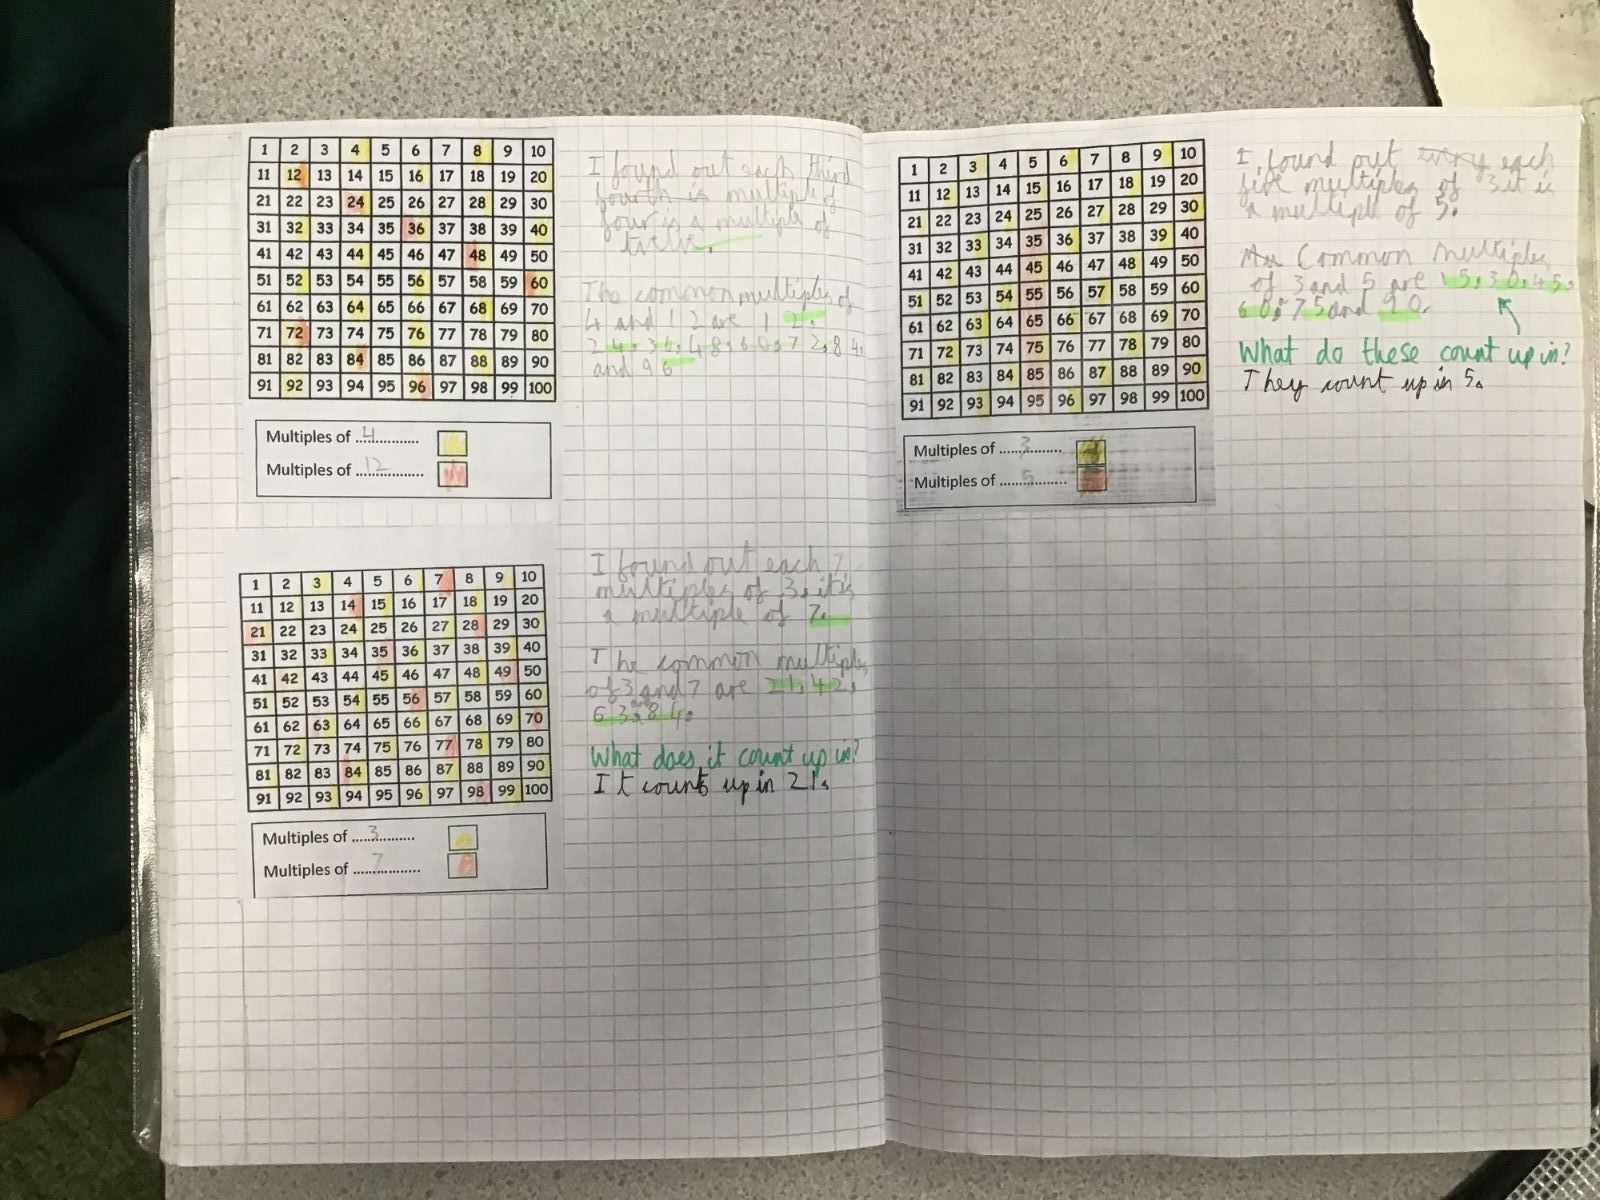 1 2 3 4 5 6 7 8 9 10
11 12 13 14 15 16 17 18 19 20
21 22 23 24 25 26 27 28 29 30
31 32 33 34 35 36 37 38 39 40
41 42 43 44 45 46 47 48 49 50
51 52 53 54 55 56 57 58 59 60
61 62 63 64 65 66 67 68 69 70
71 72 73 74 75 76 77 78 79 80
81 82 83 84 85 86 87 88 89 90
91 92 93 94 95 96 97 98 99 100
Multiples of ...4............
Multiples of ...12...............
I found out each third
fourth is multiple of
four is a multiple of
twelve.
The common multiples of
4 and 12 are 12,
24, 36, 48, 60, 72, 84,
and 96
1 2 3 4 5 6 7 8 9 10
11 12 13 14 15 16 17 18 19 20
21 22 23 24 25 26 27 28 29 30
31 32 33 34 35 36 37 38 39 40
41 42 43 44 45 46 47 48 49 50
51 52 53 54 55 56 57 58 59 60
61 62 63 64 65 66 67 68 69 70
71 72 73 74 75 76 77 78 79 80
81 82 83 84 85 86 87 88 89 90
91 92 93 94 95 96 97 98 99 100
Multiples of ....3.............
Multiples of .....7............
I found out each 7
multiples of 3, it is
a multiple of 7.
The common multiples
of 3 and 7 are 21, 42,
63 and 84.
What does it count up in?
It counts up in 21.
1 2 3 4 5 6 7 8 9 10
11 12 13 14 15 16 17 18 19 20
21 22 23 24 25 26 27 28 29 30
31 32 33 34 35 36 37 38 39 40
41 42 43 44 45 46 47 48 49 50
51 52 53 54 55 56 57 58 59 60
61 62 63 64 65 66 67 68 69 70
71 72 73 74 75 76 77 78 79 80
81 82 83 84 85 86 87 88 89 90
91 92 93 94 95 96 97 98 99 100
Multiples of .....3...........
Multiples of ......5...........
I found out every each
five multiples of 3 it is
a multiple of 5.
Common Multiples
of 3 and 5 are 15, 30, 45,
60, 75 and 90.
What do these count up in?
They count up in 5.